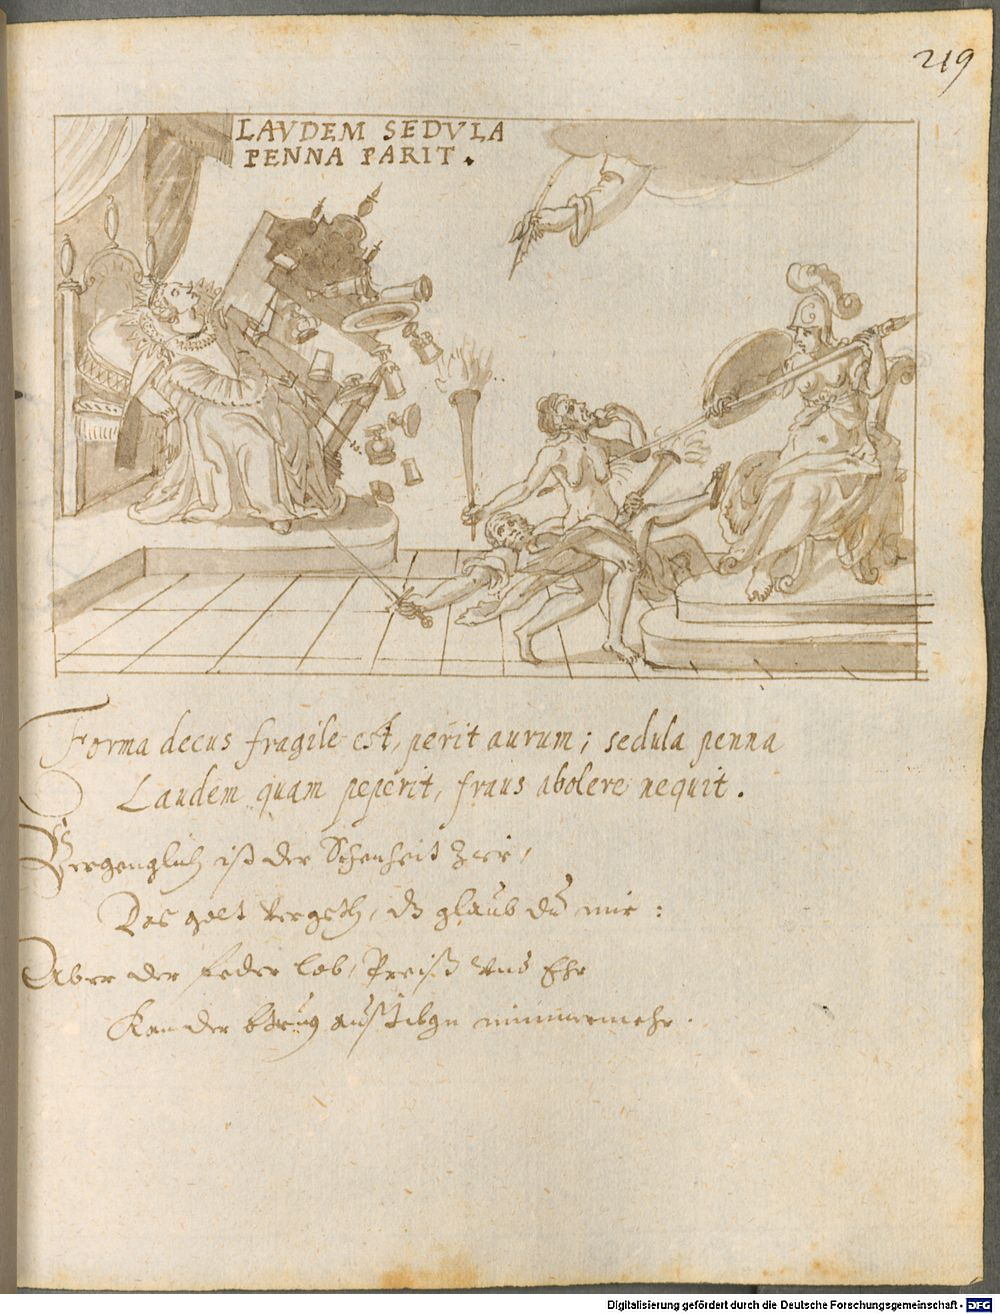 219
LAVDEM SEDVLA
PENNA PARIT.
Forma decus fragile est, perit aurum; sedula penna
Laudem quam peperit, fraus abolere nequit.
Vergenglich ist der Schenheit Zier,
Das golt vergeth, dz glaub du mir:
Aber der feder lob, Preiß vnd Ehr
Kan der btrug außtilgn nimmermehr.
Digitalisierung gefördert durch die Deutsche Forschungsgemeinschaft - DFG